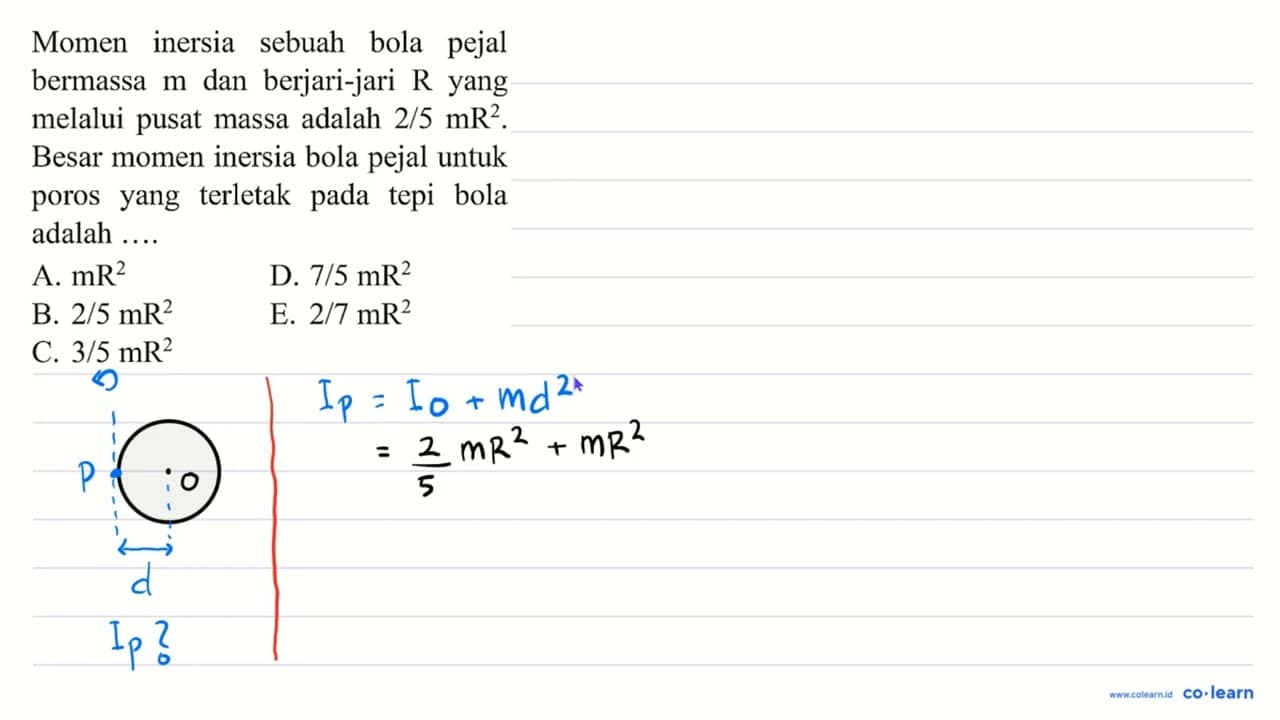 Momen inersia sebuah bola pejal
bermassa m dan berjari-jari R yang
melalui pusat massa adalah 2/5 mR².
Besar momen inersia bola pejal untuk
poros yang terletak pada tepi bola
adalah ....
A. mR² D. 7/5 mR²
B. 2/5 mR² E. 2/7 mR²
C. 3/5 mR²
I_P = I_O + md²
= 2/5 mR² + mR²
P
O
d
I_P ?
www.colearn.id co·learn